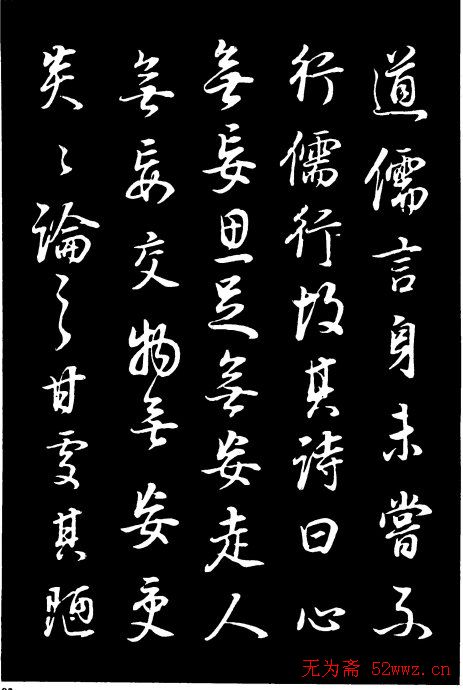 道儒言身未嘗不
行儒行故其詩曰心
無妄思足無妄走人
無妄交物無妄受
炎々論之甘處其陋
无为斋 52wwz.cn